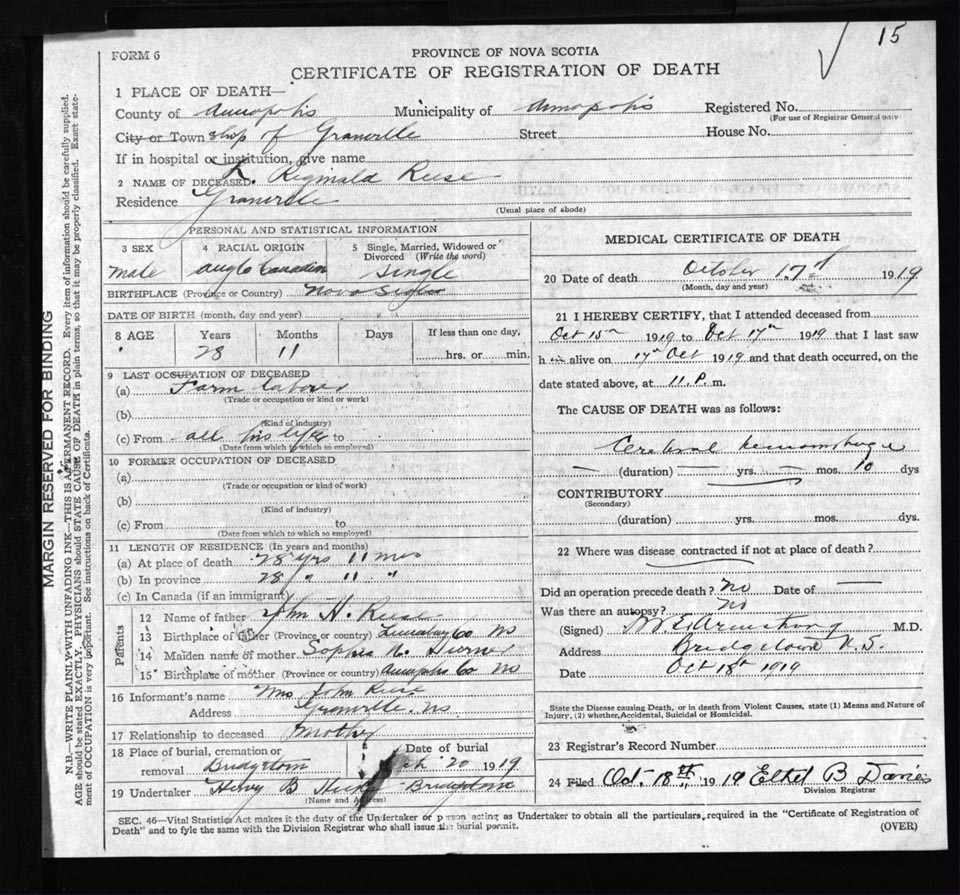 15
FORM 6
PROVINCE OF NOVA SCOTIA
CERTIFICATE OF REGISTRATION OF DEATH
1 PLACE OF DEATH—
County of Annapolis Municipality of Annapolis Registered No.
(For use of Registrar General only)
City or Town ship of Granville Street House No.
If in hospital or institution, give name
2 NAME OF DECEASED. Reginald Reese
Residence Granville
(Usual place of abode)
PERSONAL AND STATISTICAL INFORMATION
3 SEX 4 RACIAL ORIGIN 5 Single, Married, Widowed or Divorced (Write the word)
male Anglo Canadian Single
BIRTHPLACE (Province or Country) Nova Scotia
DATE OF BIRTH (month, day and year)
8 AGE Years Months Days If less than one day,
28 11 hrs. or min.
9 LAST OCCUPATION OF DECEASED
(a) Farm laborer
(Trade or occupation or kind or work)
(b)
(Kind of industry)
(c) From all his life to
(Date from which to which so employed)
10 FORMER OCCUPATION OF DECEASED
(a)
(Trade or occupation or kind of work)
(b)
(Kind of industry)
(c) From to
(Date from which to which so employed)
11 LENGTH OF RESIDENCE (In years and months)
(a) At place of death 28 yrs 11 mos
(b) In province 28 " 11 "
(c) In Canada (if an immigrant)
Parents
12 Name of father John H. Reese
13 Birthplace of father (Province or country) Lunenburg Co NS
14 Maiden name of mother Sophia
15 Birthplace of mother (Province or country) Annapolis Co NS
16 Informant's name Mrs John Reese
Address Granville. NS
17 Relationship to deceased Mother
18 Place of burial, cremation or removal Bridgetown Date of burial 20 1919
19 Undertaker B Hicks Bridgetown
(Name and Address)
MEDICAL CERTIFICATE OF DEATH
20 Date of death October 17 1919
(Month, day and year)
21 I HEREBY CERTIFY, that I attended deceased from
Oct 15th 1919 to Oct 17th 1919 that I last saw
h im alive on 17th Oct 1919 and that death occurred, on the
date stated above, at 11 P. m.
The CAUSE OF DEATH was as follows:
Cerebral hemorrhage
(duration) yrs. mos. 10 dys
CONTRIBUTORY
(Secondary)
(duration) yrs. mos. dys.
22 Where was disease contracted if not at place of death?
Did an operation precede death? No Date of —
Was there an autopsy? no
(Signed) Armstrong M.D.
Address Bridgetown N.S.
Date Oct 18th 1919
State the Disease causing Death, or in death from Violent Causes, state (1) Means and Nature of
Injury, (2) whether, Accidental, Suicidal or Homicidal.
23 Registrar's Record Number
24 Filed Oct. 18th, 1919 Ethel B Davies
Division Registrar
SEC. 46—Vital Statistics Act makes it the duty of the Undertaker or person acting as Undertaker to obtain all the particulars, required in the "Certificate of Registration of
Death" and to fyle the same with the Division Registrar who shall issue the burial permit.
(OVER)
MARGIN RESERVED FOR BINDING
N.B.—WRITE PLAINLY WITH UNFADING INK—THIS IS A PERMANENT RECORD. Every item of information should be carefully supplied.
AGE should be stated EXACTLY. PHYSICIANS should STATE CAUSE OF DEATH in plain terms, so that it may be properly classified. Exact state-
ment of OCCUPATION is very important. See instructions on back of Certificate.